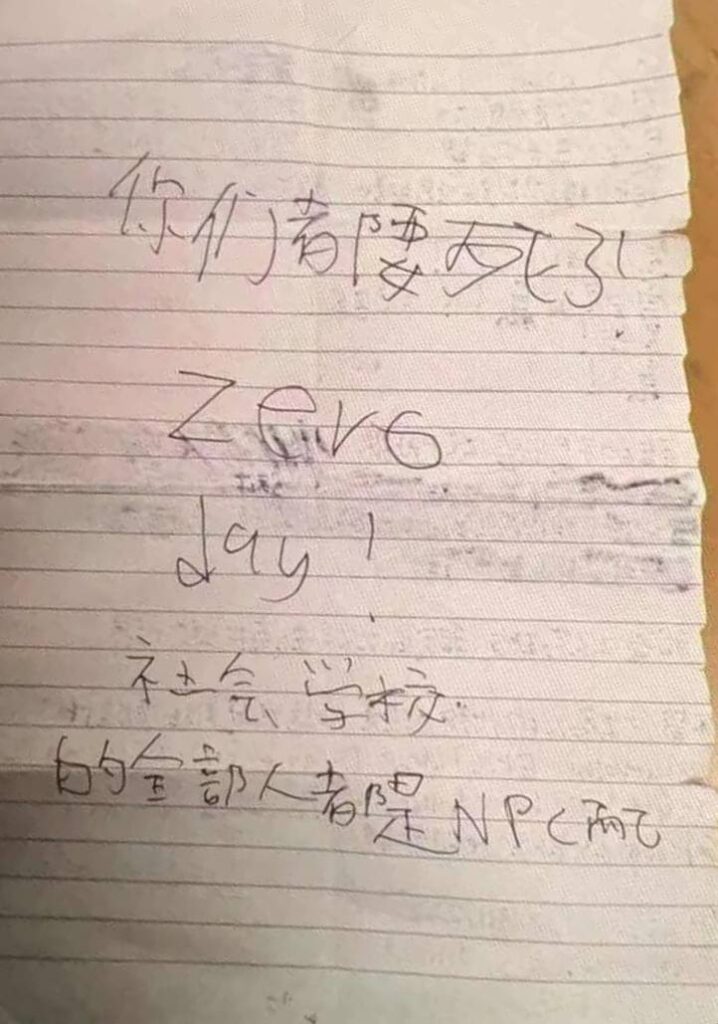 你们都要死了!
zero
day!
社会学校
的全部人都是NPC而已